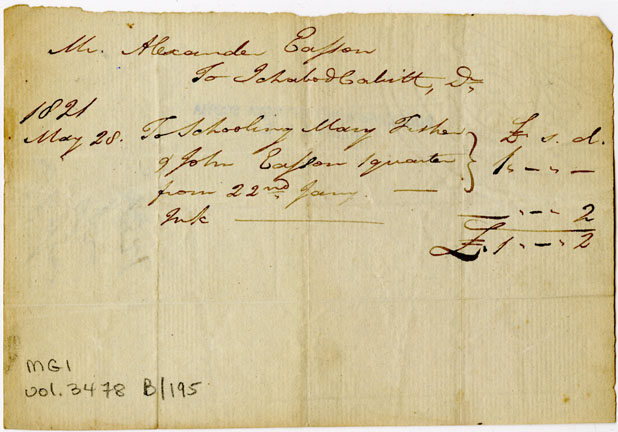 Mr. Alexander Easson
To Ichabod Cabitt, Dr
1821
May 28. To Schooling Mary Fisher £ s. d.
& John Easson 1 quarter 1 " - " -
from 22nd Jany. —
Ink — — " - " 2
£ 1 " - " 2
MG1
vol. 3478 B/195